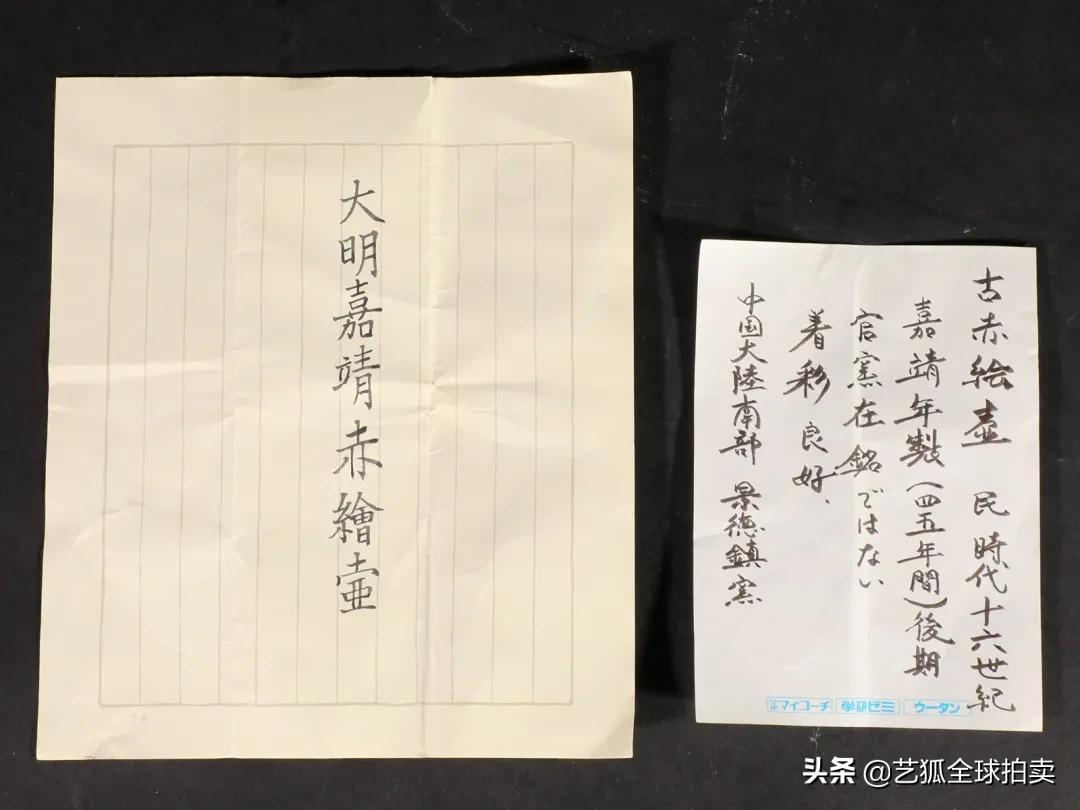 大明嘉靖赤繪壷
古赤絵壷 民時代十六世紀
嘉靖年製(四五年間)後期
官窯在銘ではない
着彩良好、
中国大陸南部 景徳鎮窯
マイコーチ 学研ゼミ ウータン
头条 @艺狐全球拍卖